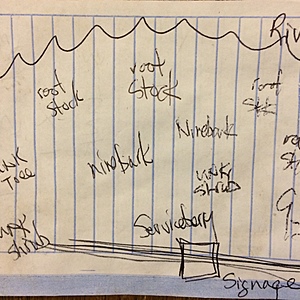 Riv
root
stock
root
stock
root
stk
Ninebark
ninebark
unk
Tree
unk
shrub
unk
shrub
Serviceberry
Signage